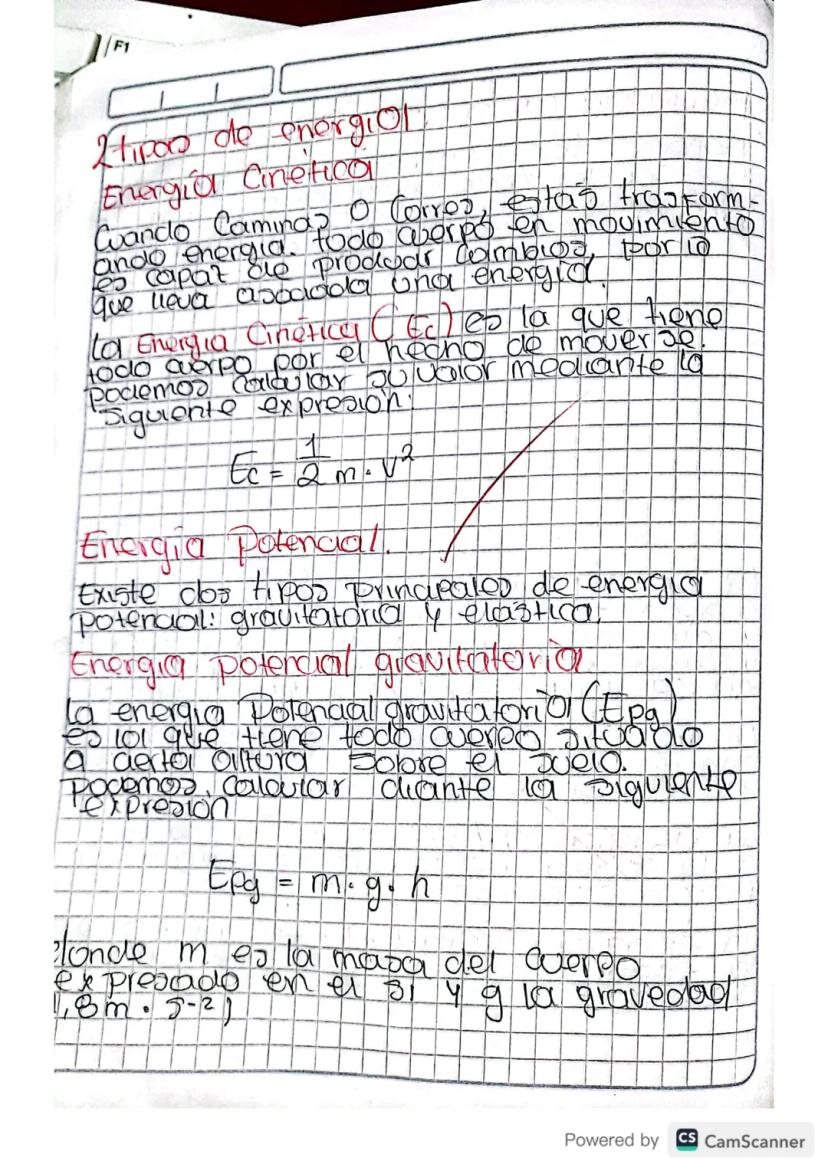 F1
2 tipos de energia
Energía Cinética
Cuando Caminas O Corres, estas trasform-
ando energia. todo cuerpo en movimiento
es capaz de producir cambios, por lo
que lleva asociada una energia.
La Energia Cinética (Ec) es la que tiene
todo cuerpo por el hecho de moverse.
podemos calcular su valor mediante la
siguiente expresión:
Ec = 1/2 m · v²
Energia Potencial.
Existe dos tipos principales de energia
potencial: gravitatoria y elástica.
Energia potencial gravitatoria
La energia Potencial gravitatoria (Epg)
es la que tiene todo cuerpo situado
a cierta altura sobre el suelo.
podemos calcular diante la siguiente
expresion
Epg = m · g · h
donde m es la masa del cuerpo
expresado en el si y g la gravedad
,8m · s-2)
Powered by CS CamScanner